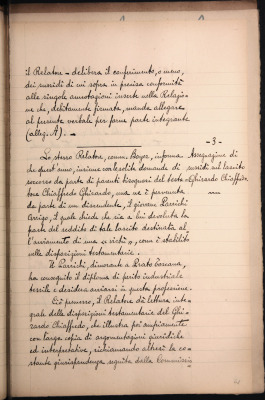 il Relatore - delibera il conferimento, o meno,
dei sussidi di cui sopra in precisa conformità
alle singole annotazioni inserte nella Relazio-
ne che, debitamente firmata, manda allegare
al presente verbale per farne parte integrante
(alleg. A). -
- 3 -
Lo stesso Relatore, comm. Bayer, informa
che quest'anno, insieme con le solite domande di
soccorso da parte di parenti bisognosi del testa-
tore Chiaffredo Ghirardo, una ne è pervenuta
da parte di un discendente, il giovane
Arrigo, il quale chiede che sia a lui devoluta la
parte del reddito di tale lascito destinata al-
l'avviamento di una, com'è stabilito
nelle disposizioni testamentarie. -
Assegnazione di
sussidi sul lascito
Ghirardo Chiaffre-
do
Il, dimorante a Prato Toscana,
ha conseguito il diploma di perito industriale
tessile e desidera avviarsi in questa professione.
Ciò premesso, il Relatore dà lettura inte-
grale delle disposizioni testamentarie del Ghi-
rardo Chiaffredo, che illustra poi ampiamente
con larga copia di argomentazioni giuridiche
ed interpretative, richiamando altresì la co-
stante giurisprudenza seguita dalla Commissio-